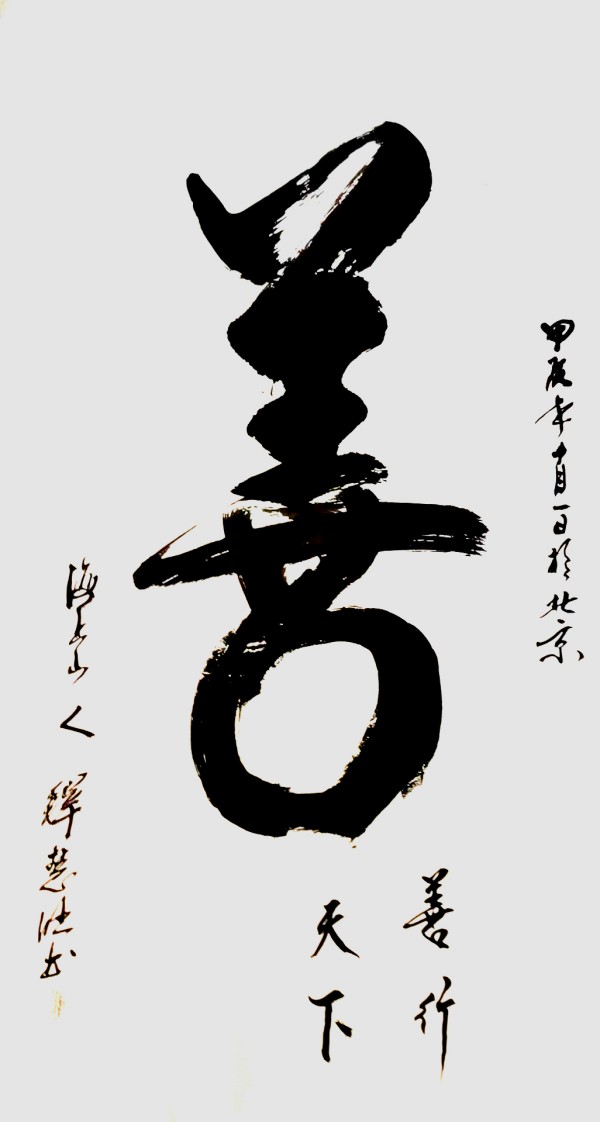 善
甲辰年十月一日於北京
善行
天下
海上山人 釋慧陀書